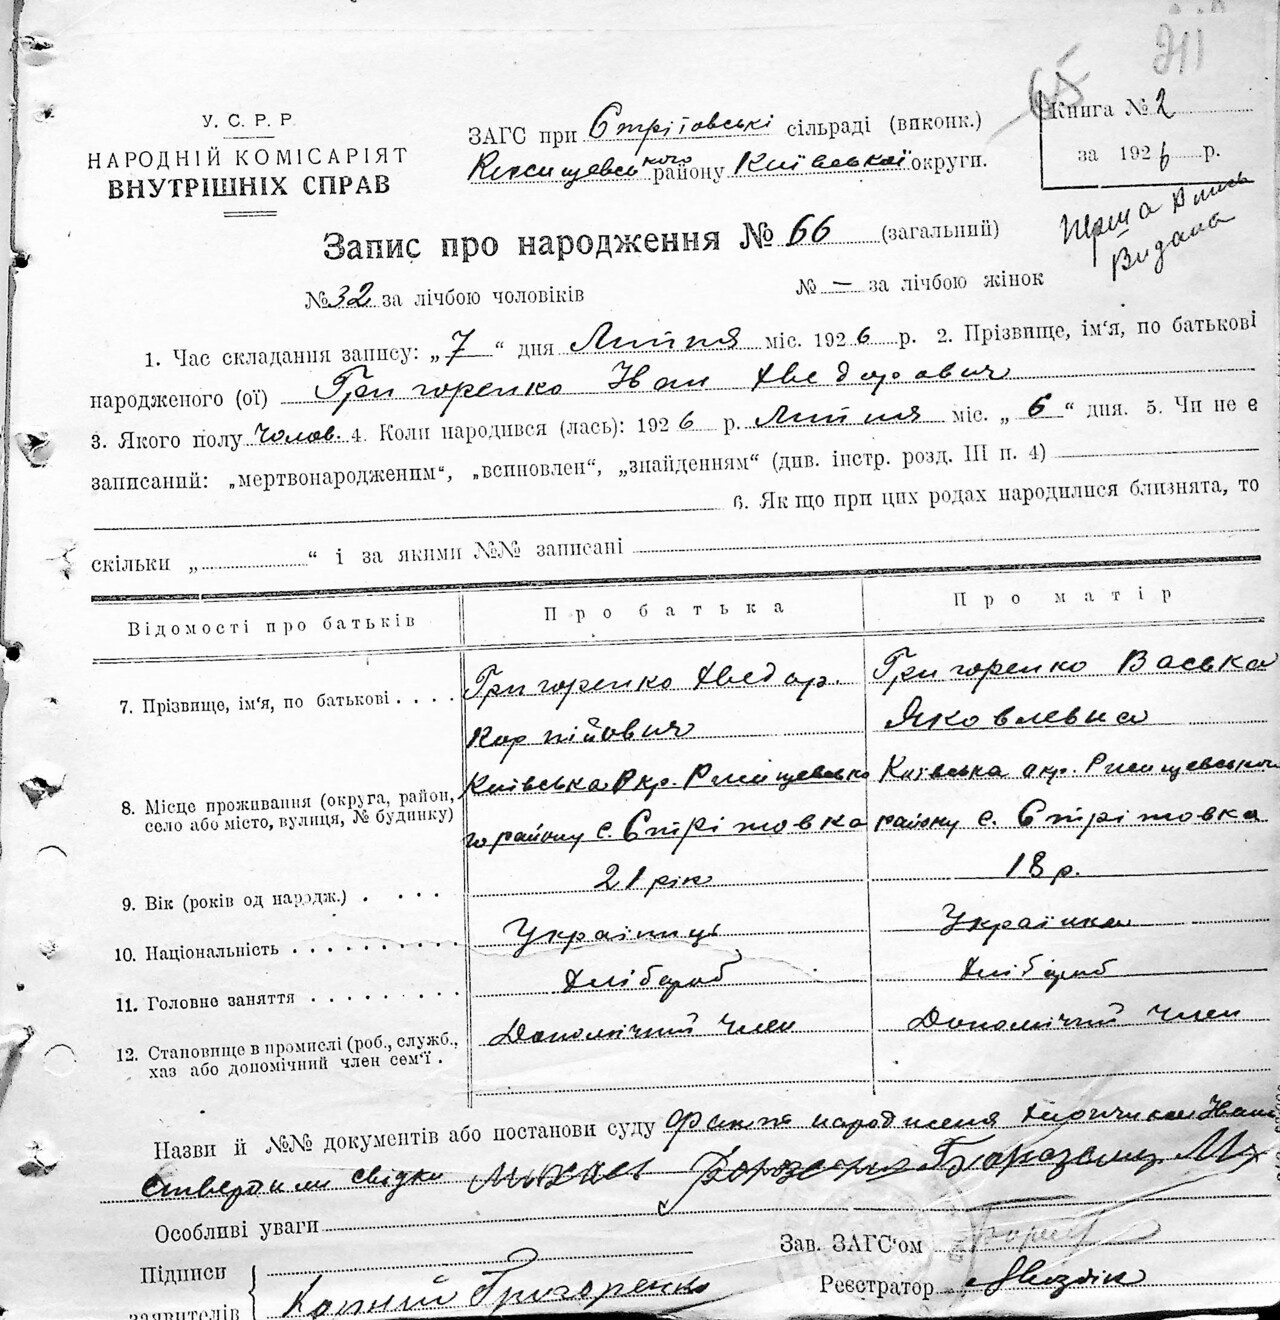 У. С. Р. Р.
НАРОДНІЙ КОМІСАРІЯТ
ВНУТРІШНІХ СПРАВ
65
ЗАГС при Стрітовські сільраді (виконк.)
району Київської округи.
Книга № 2
за 1926 р.
Перша
Видана
Запис про народження № 66 (загальний)
№ 32 за лічбою чоловіків
№ — за лічбою жінок
1. Час складання запису: „7“ дня Липня міс. 1926 р. 2. Прізвище, ім'я, по батькові
народженого (ої) Григоренко Іван Хведорович
3. Якого полу чолов. 4. Коли народився (лась): 1926 р. Липня міс. „6“ дня. 5. Чи не є
записаний: „мертвонародженим“, „всиновлен“, „знайденням“ (див. інстр. розд. III п. 4)
6. Як що при цих родах народилися близнята, то
скільки „ “ і за якими №№ записані
Відомості про батьків
Про батька
Про матір
7. Прізвище, ім'я, по батькові . . . .
Григоренко Хведор.
Карпійович
Григоренко Васька
Яковлевна
8. Місце проживання (округа, район,
село або місто, вулиця, № будинку)
Київська Окр. Ржищевсько
го району с. Стрітовка
Київська окр. Ржищевського
району с. Стрітовка
9. Вік (років од народж.) . . . .
21 рік
18 р.
10. Національність . . . . . . . . . .
Українць
Українка
11. Головне заняття . . . . . . . .
Хлібороб
Хлібороб
12. Становище в промислі (роб., служб.,
хаз або допомічний член сем'ї .
Допомічний член
Допомічний член
Назви й №№ документів або постанови суду Факт народження хлопчика Івана
ствердили свідки
Особливі уваги
Зав. ЗАГС'ом
Підписи
заявителів
Григоренко
Реєстратор